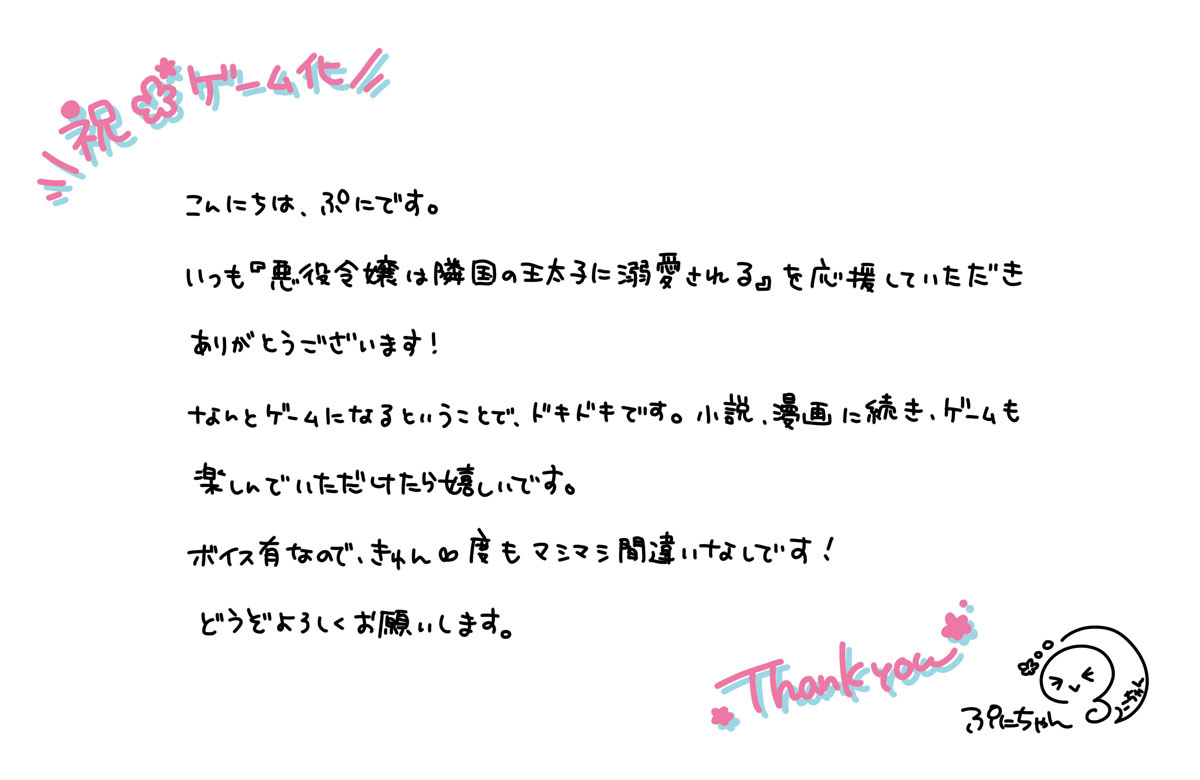 祝 ゲーム化
こんにちは、ぷにです。
いつも『悪役令嬢は隣国の王太子に溺愛される』を応援していただき
ありがとうございます!
なんとゲームになるということで、ドキドキです。小説、漫画に続き、ゲームも
楽しんでいただけたら嬉しいです。
ボイス有なので、きゅん♡度もマシマシ間違いなしです!
どうぞよろしくお願いします。
Thank you
ぷにちゃん